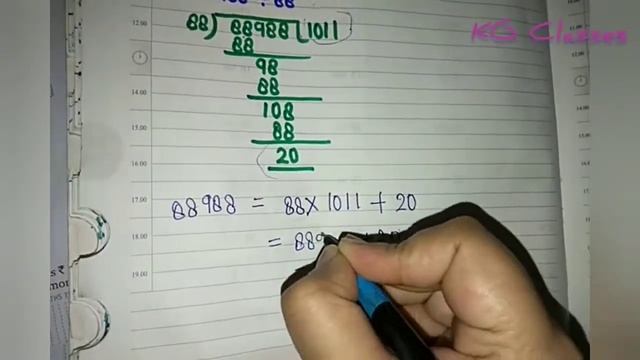 KG Classes
88) 88988 (1011
88
98
88
108
88
20
88988 = 88 × 1011 + 20
= 889
12.00
13.00
14.00
15.00
16.00
17.00
18.00
19.00